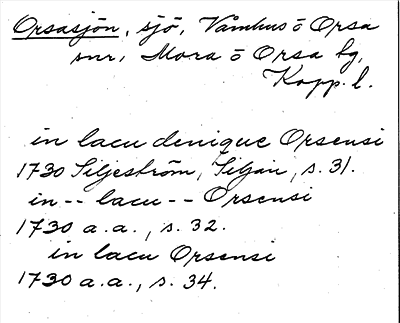 Orsasjön, sjö, Våmhus ö Orsa
snr, Mora ö Orsa tg,
Kopp. l.
in lacu denique Orsensi
1730 Siljeström, Siljan, s. 31.
in -- lacu -- Orsensi
1730 a.a., s. 32.
in lacu Orsensi
1730 a.a., s. 34.